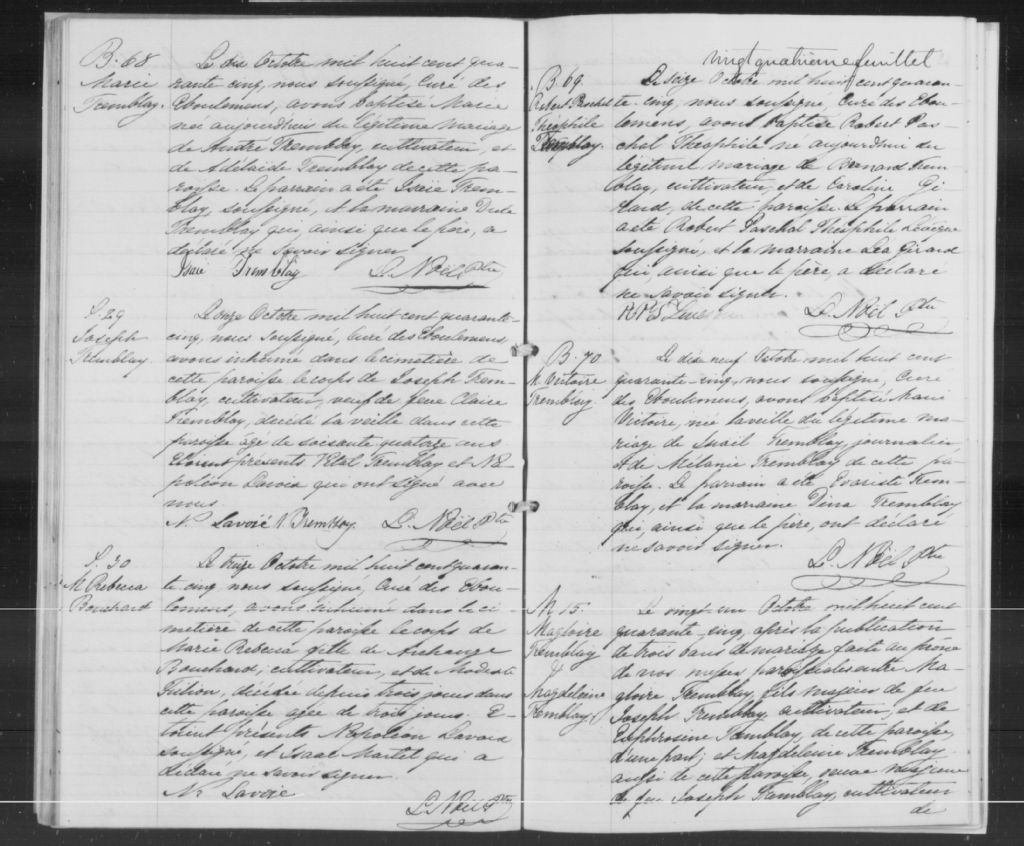 B. 68
Marie
Tremblay.
Le dix Octobre mil huit cent qua-
rante cinq, nous soussigné, Curé des
Eboulemens, avons baptisé Marie
née aujourd'hui du légitime mariage
de André Tremblay, cultivateur, et
de Adélaïde Tremblay de cette pa-
roisse. Le parrain a été Isaïe Trem-
blay, soussigné, et la marraine
Tremblay qui, ainsi que le père, a
déclaré ne savoir signer.
Isaie Tremblay L. Noël Ptre
S. 29
Joseph
Tremblay.
Le onze Octobre mil huit cent quarante-
cinq, nous soussigné, Curé des Eboulemens,
avons inhumé dans le cimetière de
cette paroisse le corps de Joseph Trem-
blay, cultivateur, veuf de feue Claire
Tremblay, décédé la veille dans cette
paroisse agé de soixante quatorze ans.
Etoient présents Vital Tremblay et Na-
poléon Lavoie qui ont signé avec
nous.
N. Lavoié V. Tremblay. L. Noël Ptre
S. 30
M. Rebecca
Bouchard
Le treize Octobre mil huit cent quaran-
te cinq, nous soussigné, Curé des Ebou-
lemens, avons inhumé dans le ci-
metière de cette paroisse le corps de
Marie Rebecca fille de Archange
Bouchard, cultivateur, et de Modeste
décédée depuis trois jours dans
cette paroisse agée de trois jours. E-
toient présents Napoléon Lavoie
soussigné, et Isaac Martel qui a
déclaré ne savoir signer.
N. Lavoie
L. Noël Ptre
vingt quatrième feuillet
B. 69.
Robert Paschal
Théophile
Tremblay.
Le seize Octobre mil huit cent quaran-
te-cinq, nous soussigné, Curé des Ebou-
lemens, avons baptisé Robert Pas-
chal Théophile né aujourd'hui du
légitime mariage de Bernard Trem-
blay, cultivateur, et de Caroline Gi-
rard, de cette paroisse. Le parrain
a été Robert Paschal Théophile
soussigné, et la marraine Léa Girard
qui, ainsi que le père, a déclaré
ne savoir signer.
L. Noël Ptre
B. 70
M. Victoire
Tremblay
Le dix neuf Octobre mil huit cent
quarante-cinq, nous soussigné, Curé
des Eboulemens, avons baptisé Marie
Victoire, née la veille du légitime ma-
riage de Tremblay, journalier
et de Mélanie Tremblay de cette pa-
roisse. Le parrain a été Evariste Trem-
blay, et la marraine Dina Tremblay
qui, ainsi que le père, ont déclaré
ne savoir signer.
L. Noël Ptre
M. 15.
Magloire
Tremblay
&
Magdeleine
Tremblay.
Le vingt-un Octobre mil huit cent
quarante-cinq, après la publication
de trois bans de mariage faite au prône
de nos messes paroissiales entre Ma-
gloire Tremblay, fils majeur de feu
Joseph Tremblay, cultivateur, et de
Euphrosine Tremblay, de cette paroisse,
d'une part; et Magdeleine Tremblay
aussi de cette paroisse, majeure
de feu Joseph Tremblay, cultivateur
de